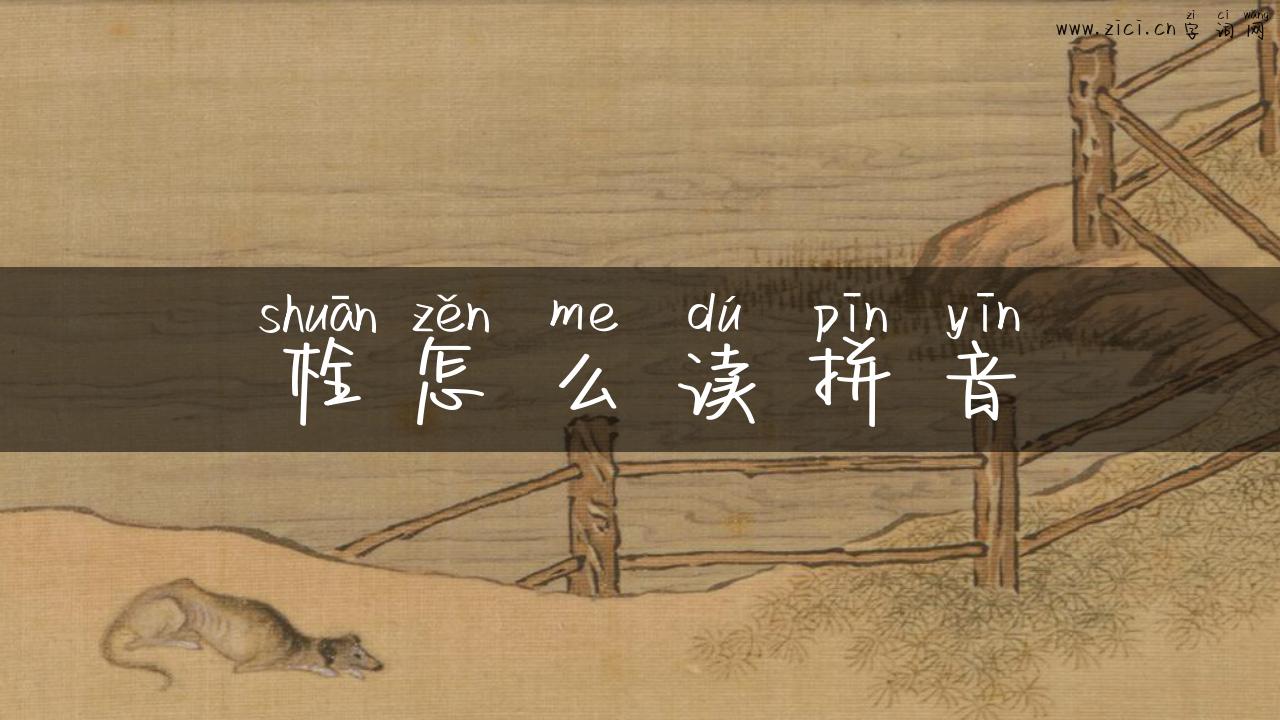 zì cí wǎng
www.zici.cn 字词网
shuān zěn me dú pīn yīn
栓怎么读拼音